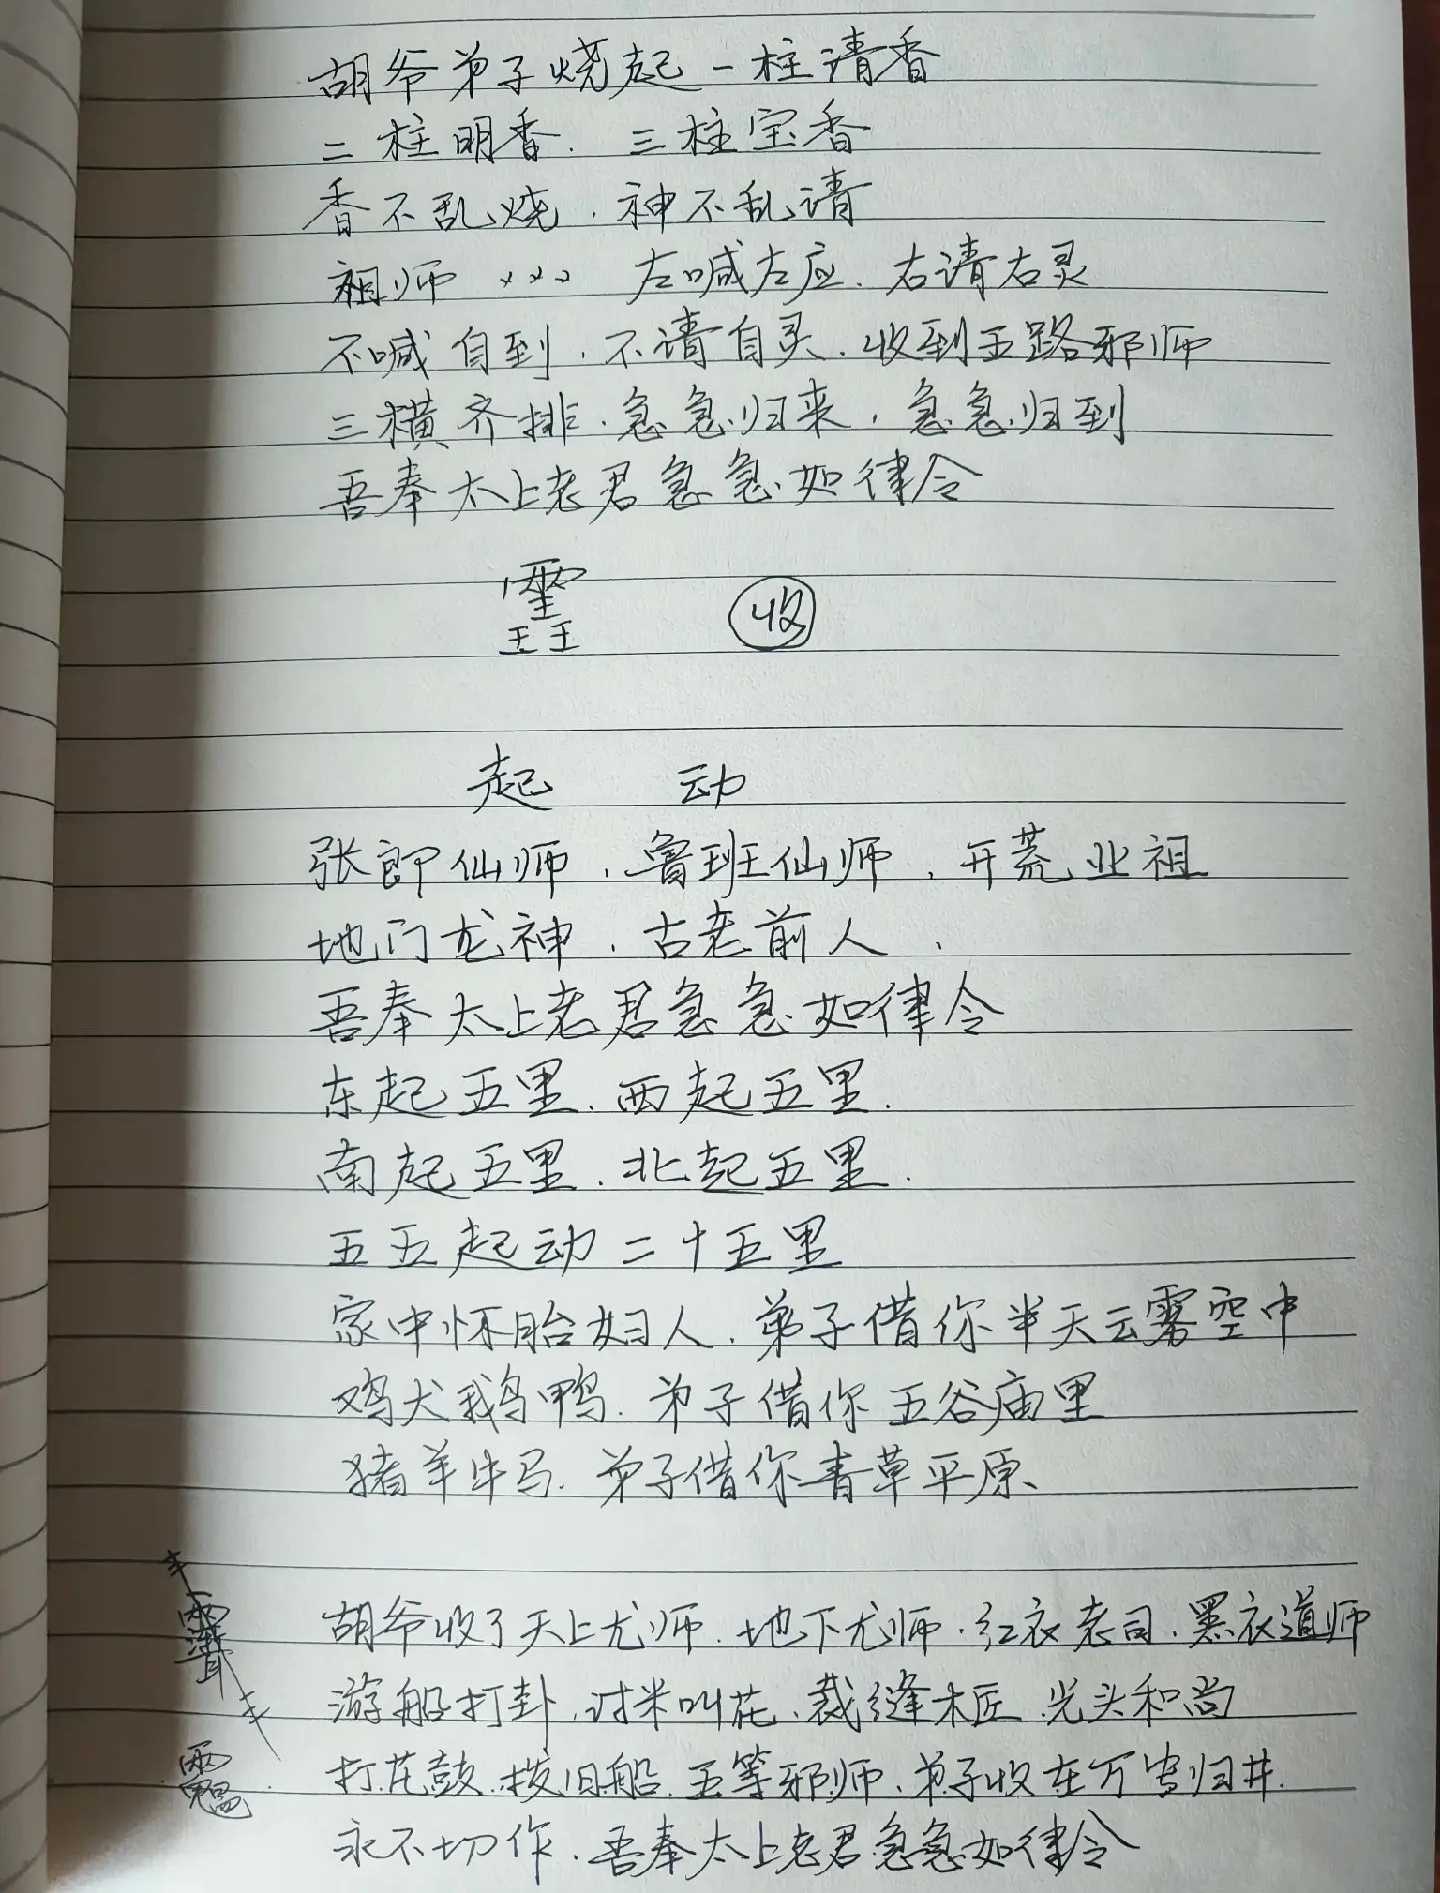 胡爷弟子烧起一柱清香
二柱明香．三柱宝香
香不乱烧．神不乱请
祖师 ××× 左喊左应．右请右灵
不喊自到．不请自灵．收到五路邪师
三横齐排．急急归来，急急归到
吾奉太上老君急急如律令
收
起 动
张郎仙师，鲁班仙师，开荒业祖
地门龙神，古老前人，
吾奉太上老君急急如律令
东起五里．西起五里．
南起五里．北起五里．
五五起动二十五里
家中怀胎妇人．弟子借你半天云雾空中
鸡犬鹅鸭．弟子借你五谷庙里
猪羊牛马．弟子借你青草平原、
胡爷收了天上尤师．地下尤师．红衣老司．黑衣道师
游船打卦，讨米叫花、裁缝木匠、光头和尚
打花鼓．拨旧船．五等邪师．弟子收在万丈归井．
永不切作．吾奉太上老君急急如律令